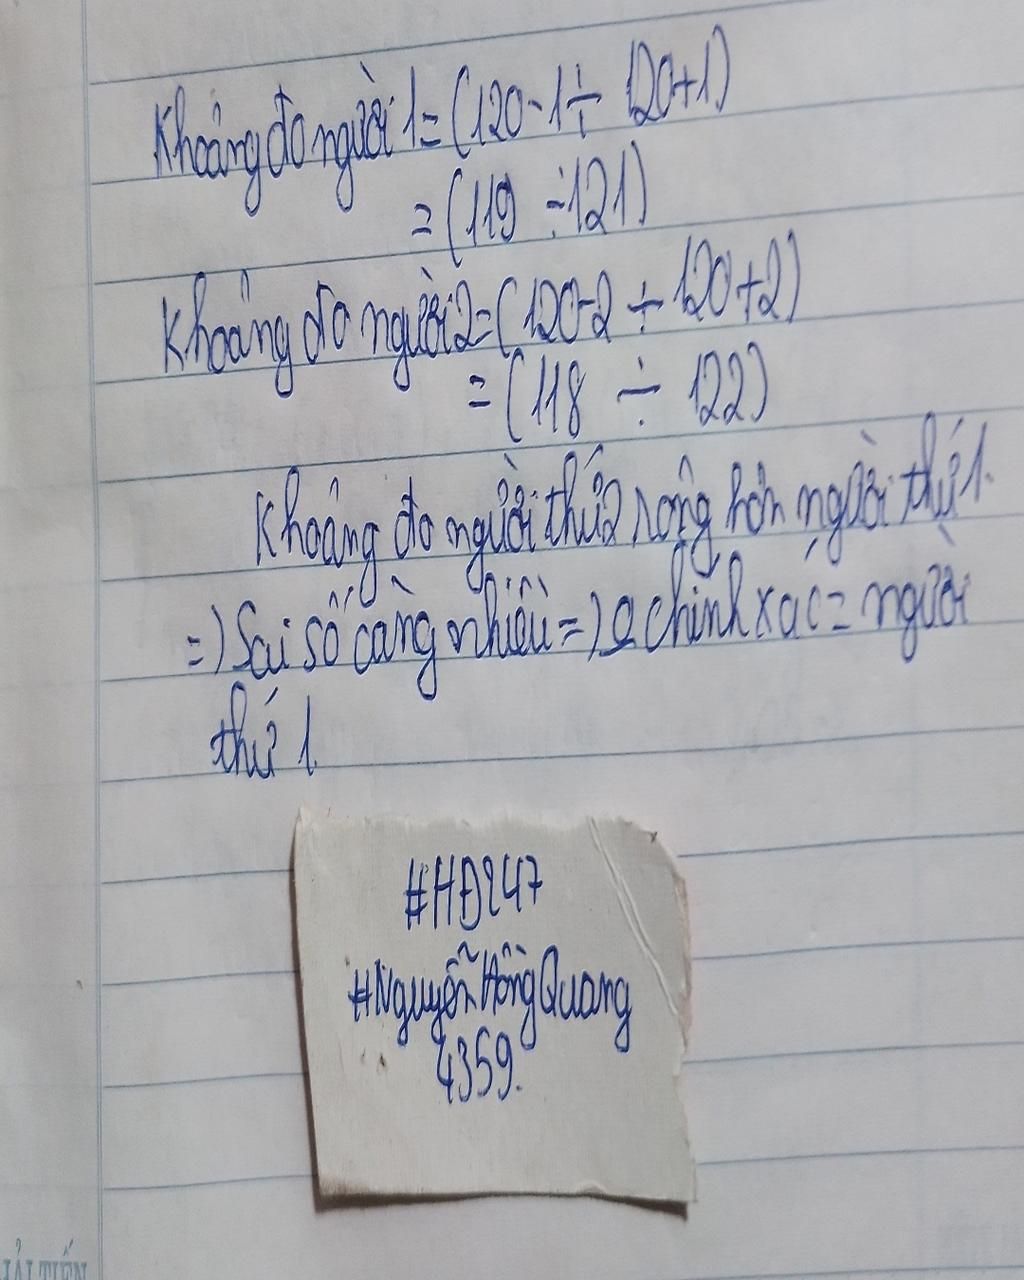 Khoảng đo người 1 = (120-1 ÷ 120+1)
= (119 ÷ 121)
Khoảng đo người 2 = (120-2 ÷ 120+2)
= (118 ÷ 122)
Khoảng đo người thứ 2 rộng hơn người thứ 1.
=) Sai số càng nhiều =) chính xác = người
thứ 1.
#HĐ247
#Nguyễn Hồng Quang
4359.
ẢI TIẾN